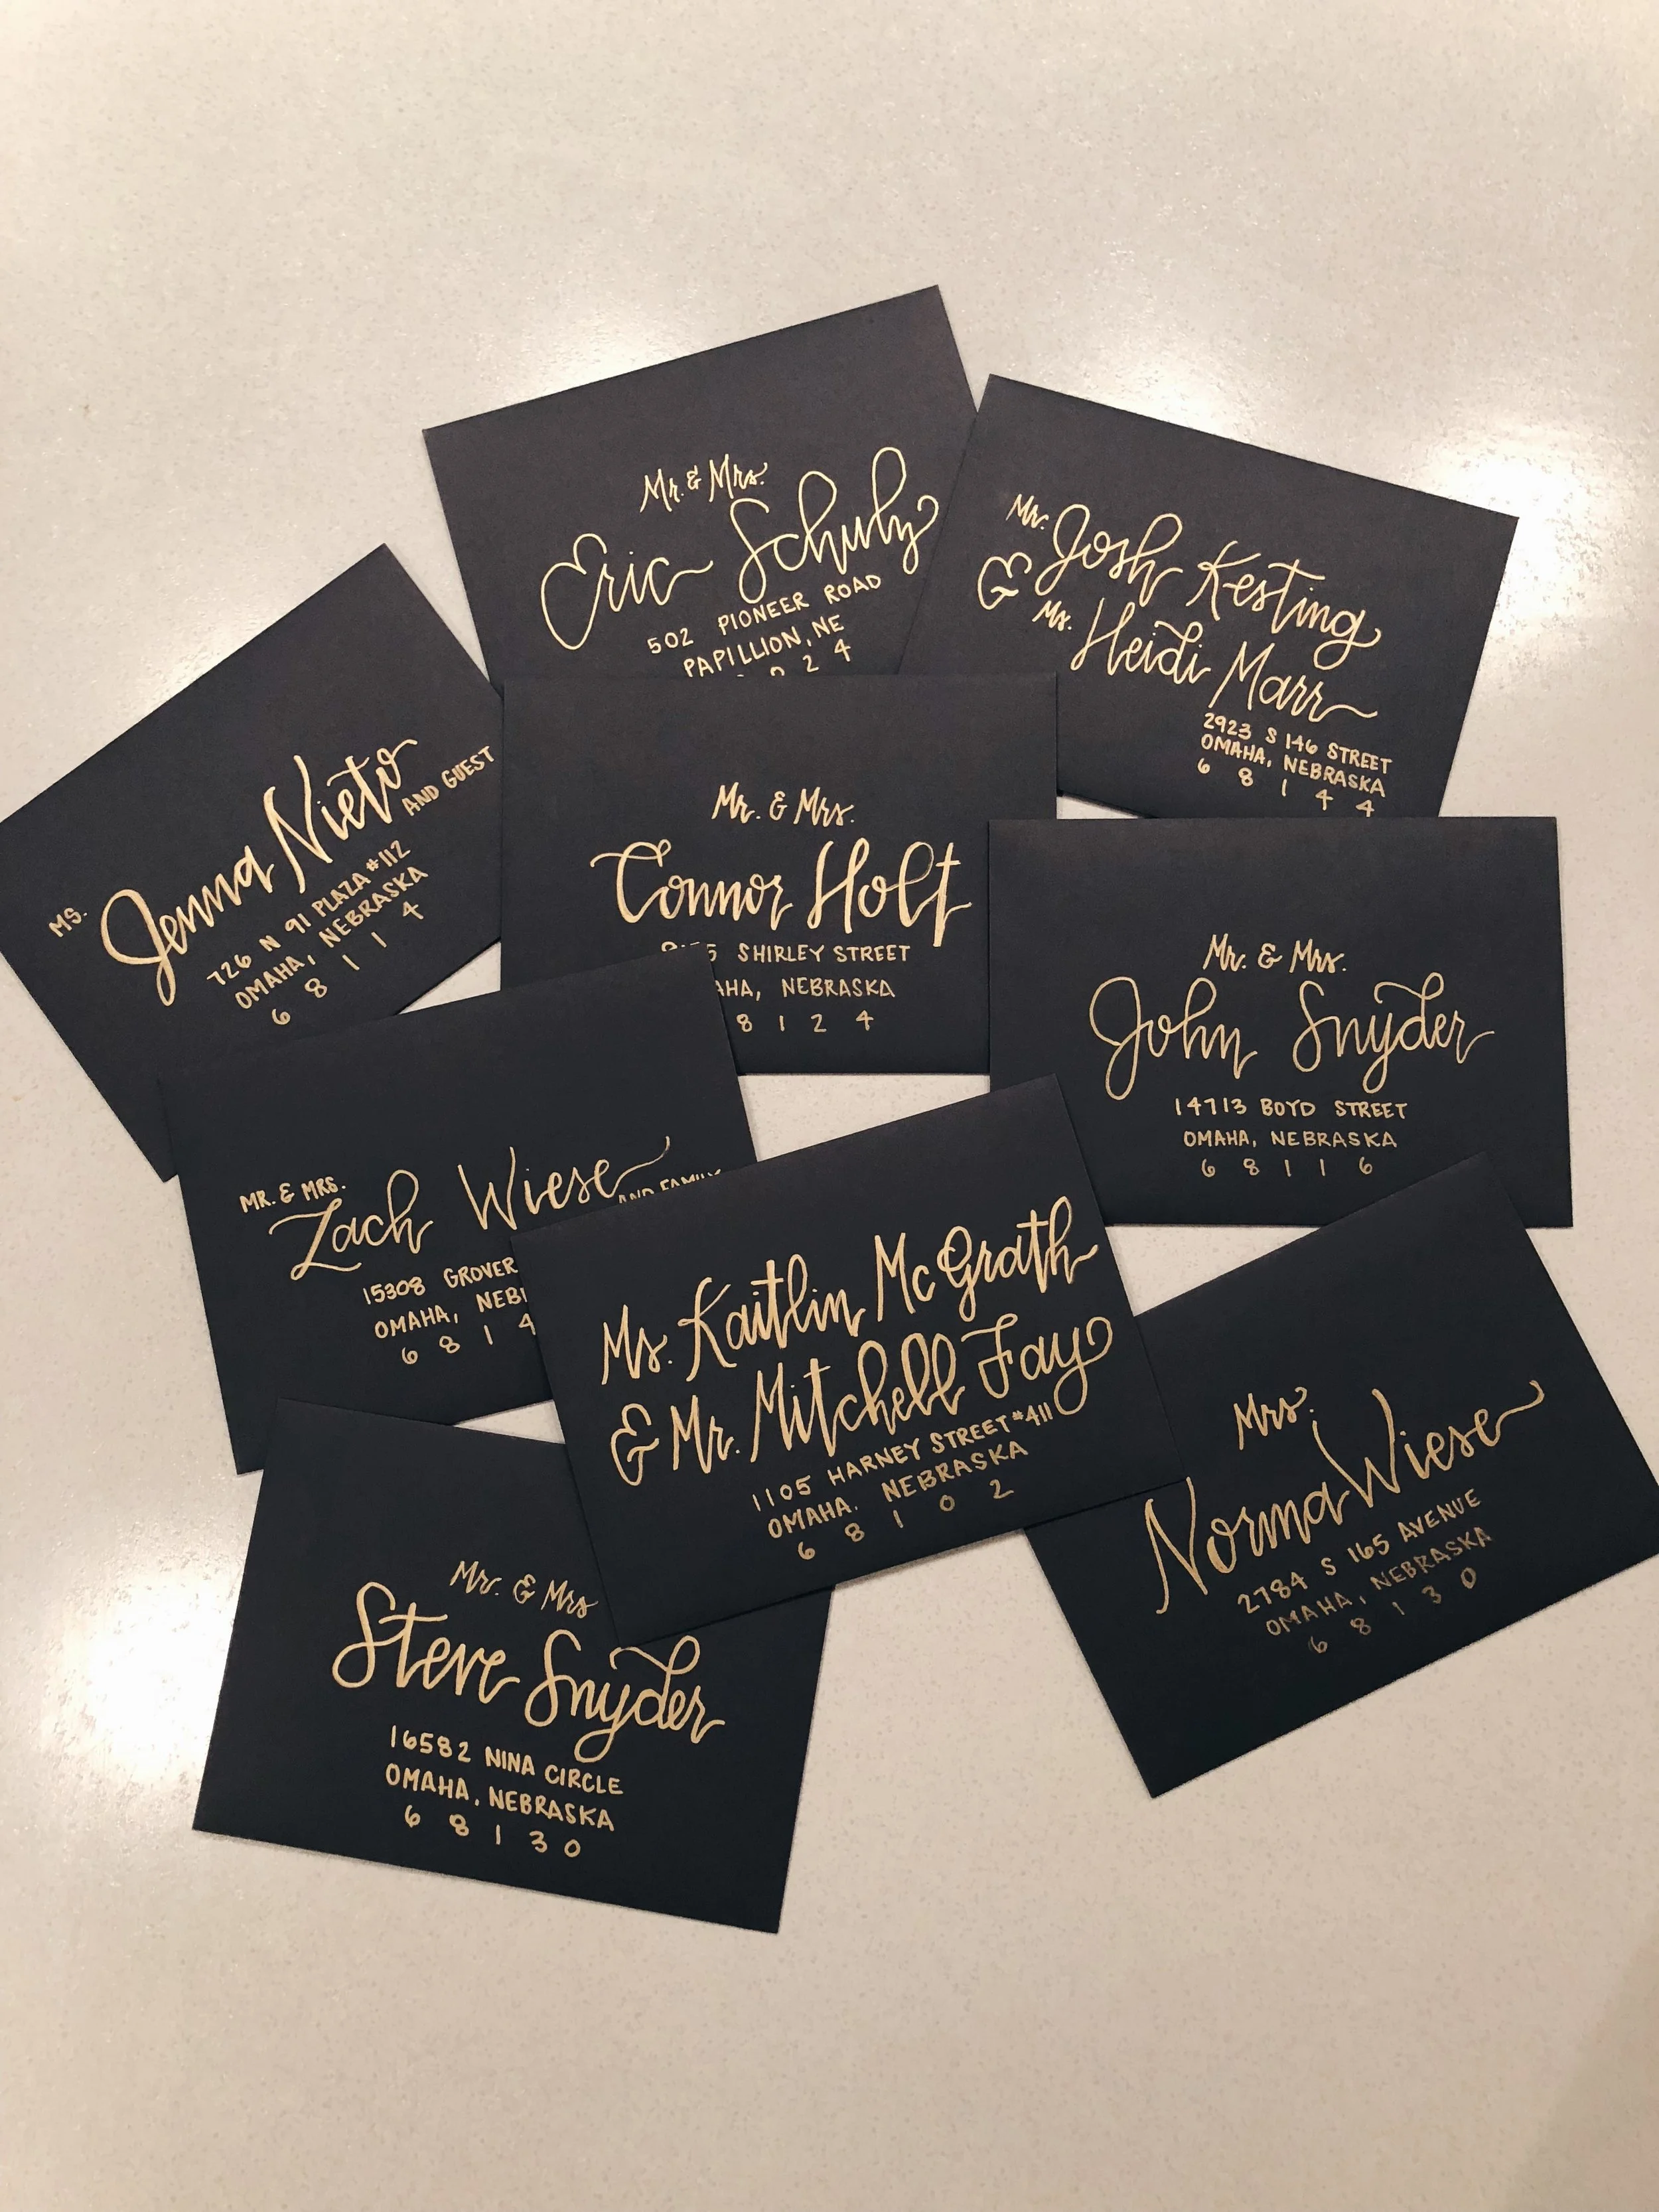 Mr. & Mrs.
Eric Schulz
502 PIONEER ROAD
PAPILLION, NE
2 4
Mr. Josh Kesting
& Ms. Heidi Marr
2923 S 146 STREET
OMAHA, NEBRASKA
6 8 1 4 4
MS. Jenna Nieto AND GUEST
726 N 91 PLAZA #112
OMAHA, NEBRASKA
6 8 1 1 4
Mr. & Mrs.
Connor Holt
SHIRLEY STREET
AHA, NEBRASKA
8 1 2 4
Mr. & Mrs.
John Snyder
14713 BOYD STREET
OMAHA, NEBRASKA
6 8 1 1 6
MR. & MRS.
Zach Wiese AND FAMILY
15308 GROVER
OMAHA, NEB
6 8 1 4
Ms. Kaitlin McGrath
& Mr. Mitchell Fay
1105 HARNEY STREET #411
OMAHA, NEBRASKA
6 8 1 0 2
Mrs.
Norma Wiese
2784 S 165 AVENUE
OMAHA, NEBRASKA
6 8 1 3 0
Mr. & Mrs
Steve Snyder
16582 NINA CIRCLE
OMAHA, NEBRASKA
6 8 1 3 0